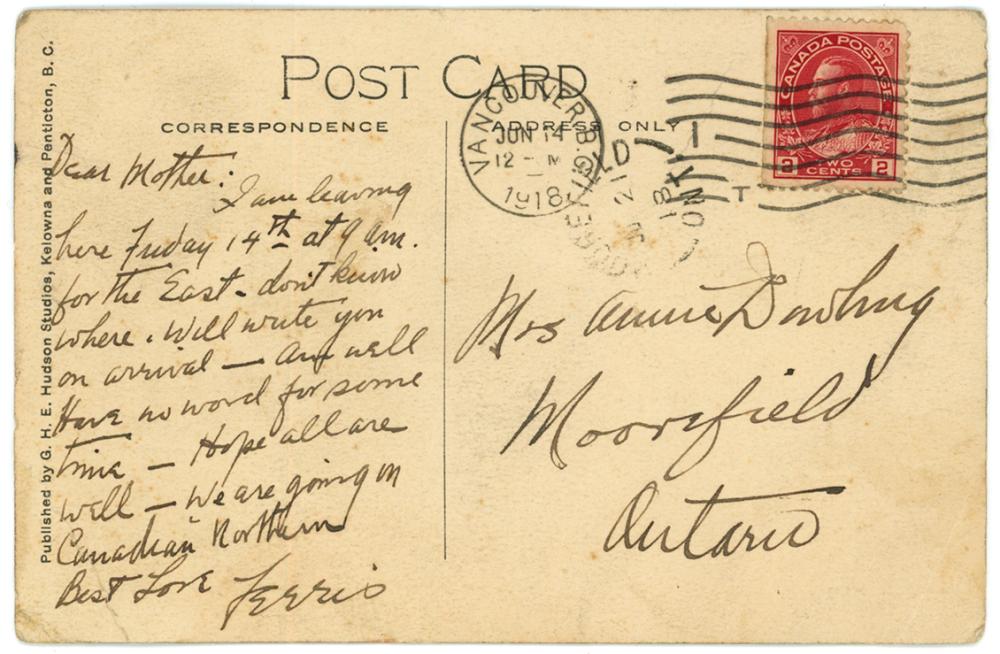 POST CARD
CORRESPONDENCE
ADDRESS ONLY
Published by G. H. E. Hudson Studios, Kelowna and Penticton, B. C.
Dear Mother:
I am leaving
here Friday 14th at 9 am.
for the East - don't know
where. Will write you
on arrival — Am well
Have no word for some
time — Hope all are
well — We are going on
Canadian Northern
Best Love Ferris
VANCOUVER B.C.
JUN 14
12 - M
1918
CANADA POSTAGE
2 TWO CENTS 2
Mrs Annie Dowling
Moorefield
Ontario